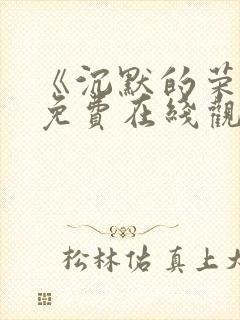 《沉默的荣
免費在綫觀
松林佑真上大